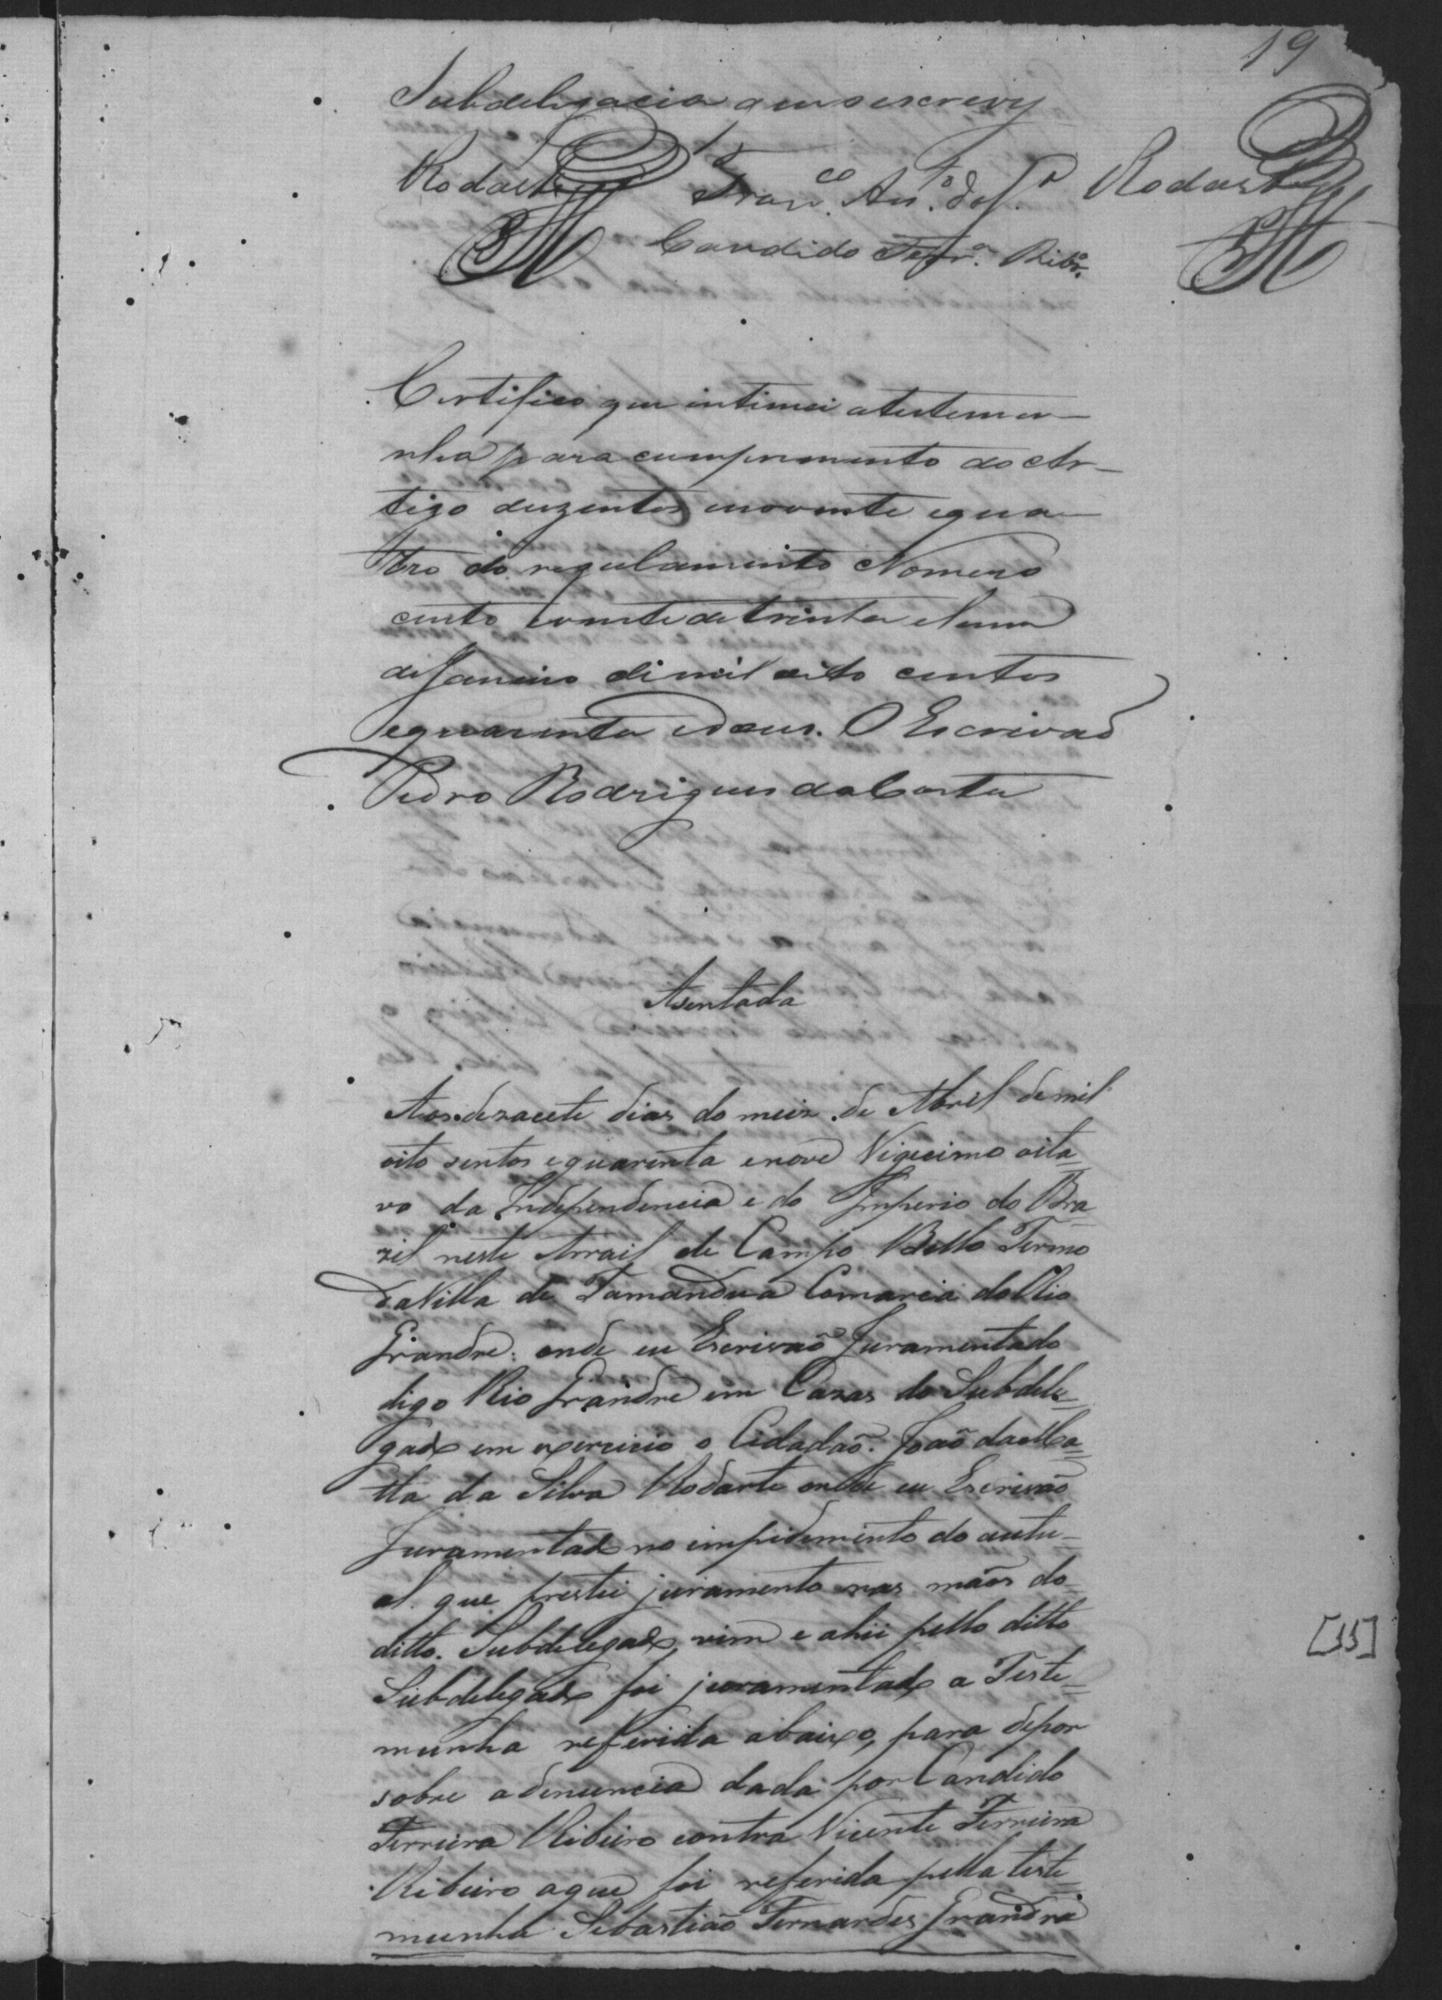 19
Subdelegacia que o escrevy
Rodarte Franco. Anto. de S.a Rodarte
Candido Ferra. Ribro.
Certifico que intimei atestemu-
nha para cumprimento do Ar-
tigo duzentos enoventa equa-
tro do regulamento Nomero
cento evinte de trinta ehum
de Janeiro di mil oito centos
equarenta edous. O Escrivaõ
Pedro Rodrigues da Costa
Asentada
Aos dezacete dias do meiz de Abril de mil
oito sentos equarenta enove Vigecimo oita-
vo da Independencia e do Imperio do Bra-
zil neste Arrail de Campo Bello Termo
DaVilla de Tamandua Comarca do Rio
Grande: onde eu Escrivaõ Juramentado
digo Rio Grande em Cazas do Subdele-
gado em exercicio o Cidadaõ. Joaõ da Ma-
tta da Silva Rodarte onde eu Escrivaõ
Juramentado no impidimento do autu-
al que prestei juramento nas mãos do
ditto. Subdelegado, vim e ahii pello ditto
Subdelegado foi juramentado a Teste-
munha referida abaixo, para depor
sobre adenuncia dada por Candido
Ferreira Ribeiro contra Vicente Ferreira
Ribeiro aque foi referida pella teste-
munha Sebastião Fernandes Grandra
[55]